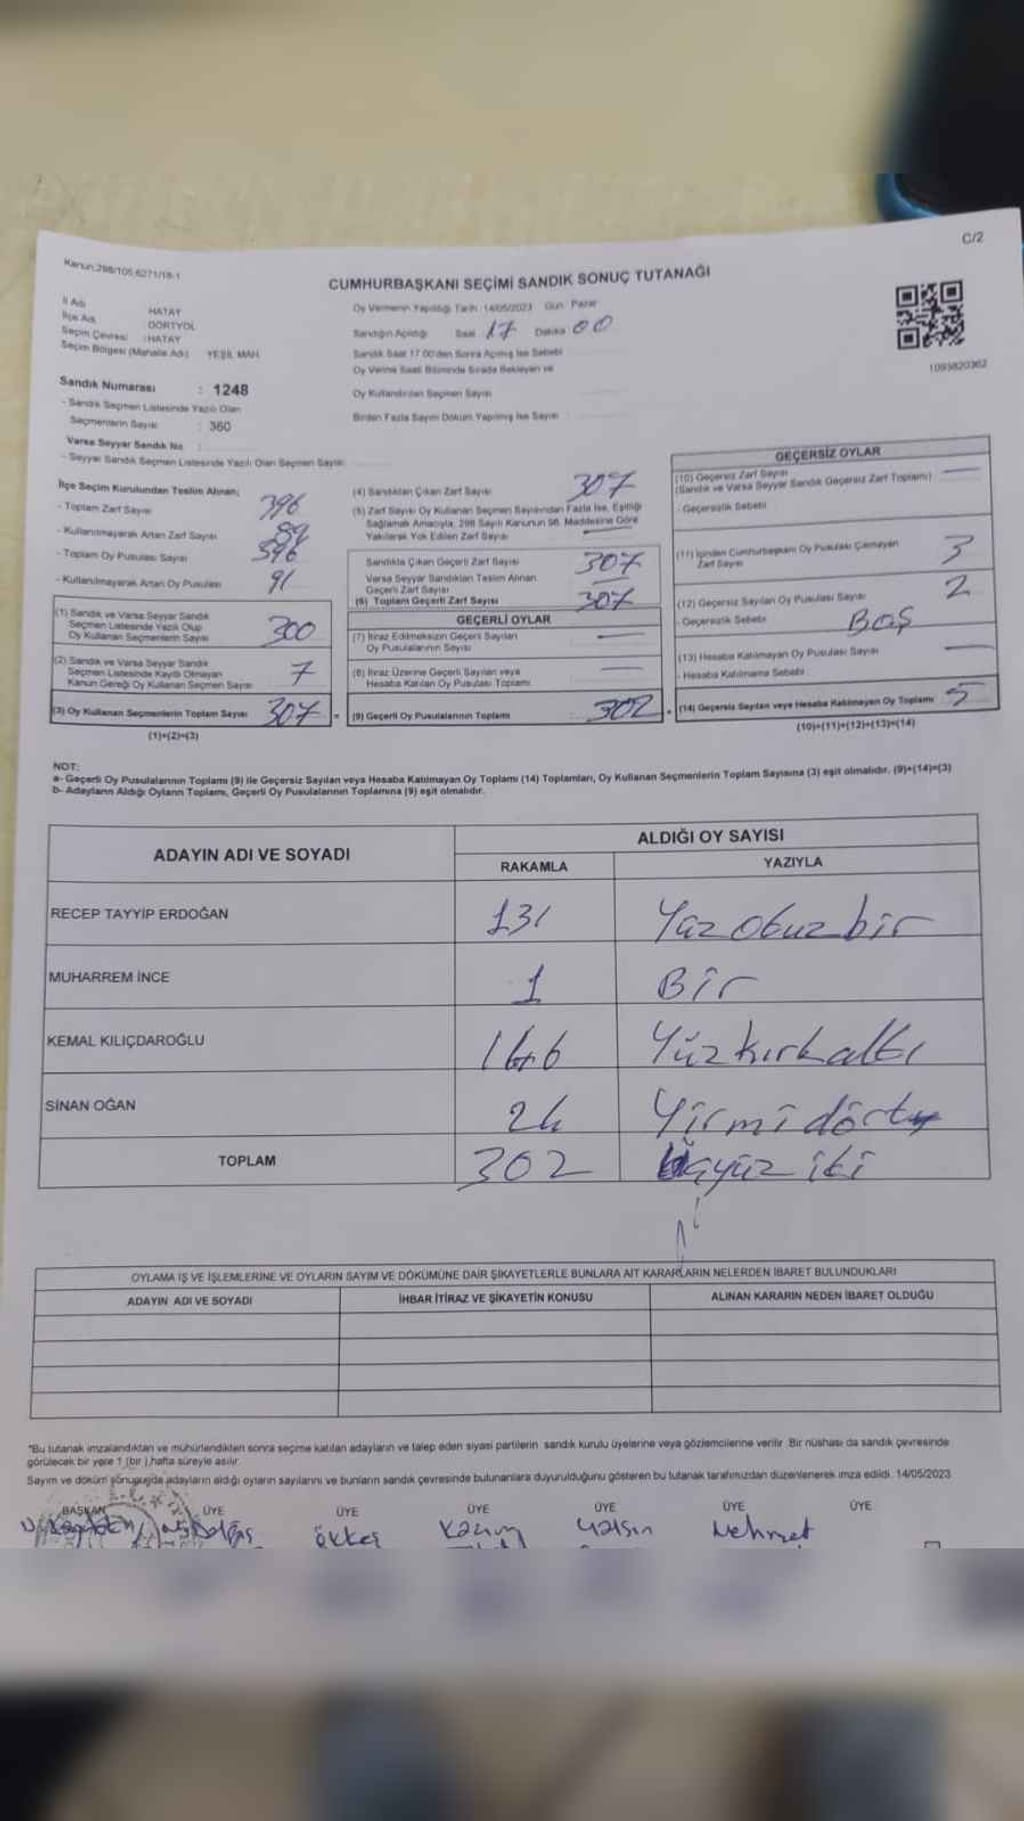 C/2
Kanun:298/105,6271/18-1
CUMHURBAŞKANI SEÇİMİ SANDIK SONUÇ TUTANAĞI
İl Adı HATAY
İlçe Adı DÖRTYOL
Seçim Çevresi : HATAY
Seçim Bölgesi (Mahalle Adı) YEŞİL MAH.
Oy Vermenin Yapıldığı Tarih: 14/05/2023 Gün: Pazar
Sandığın Açıldığı Saat 17 Dakika 00
Sandık Saat 17.00'den Sonra Açılmış İse Sebebi
Oy Verme Saati Bitiminde Sırada Bekleyen ve
Oy Kullandırılan Seçmen Sayısı
Birden Fazla Sayım Döküm Yapılmış İse Sayısı
1095820362
Sandık Numarası : 1248
- Sandık Seçmen Listesinde Yazılı Olan
Seçmenlerin Sayısı : 360
Varsa Seyyar Sandık No :
- Seyyar Sandık Seçmen Listesinde Yazılı Olan Seçmen Sayısı:
İlçe Seçim Kurulundan Teslim Alınan;
- Toplam Zarf Sayısı 396
- Kullanılmayarak Artan Zarf Sayısı 89
- Toplam Oy Pusulası Sayısı 396
- Kullanılmayarak Artan Oy Pusulası 91
(1) Sandık ve Varsa Seyyar Sandık
Seçmen Listesinde Yazılı Olup
Oy Kullanan Seçmenlerin Sayısı 300
(2) Sandık ve Varsa Seyyar Sandık
Seçmen Listesinde Kayıtlı Olmayan
Kanun Gereği Oy Kullanan Seçmen Sayısı 7
(3) Oy Kullanan Seçmenlerin Toplam Sayısı 307 =
(1)+(2)=(3)
(4) Sandıktan Çıkan Zarf Sayısı 307
(5) Zarf Sayısı Oy Kullanan Seçmen Sayısından Fazla İse, Eşitliği
Sağlamak Amacıyla, 298 Sayılı Kanunun 98. Maddesine Göre
Yakılarak Yok Edilen Zarf Sayısı
Sandıkta Çıkan Geçerli Zarf Sayısı 307
Varsa Seyyar Sandıktan Teslim Alınan
Geçerli Zarf Sayısı
(6) Toplam Geçerli Zarf Sayısı 307
GEÇERLİ OYLAR
(7) İtiraz Edilmeksizin Geçerli Sayılan
Oy Pusulalarının Sayısı
(8) İtiraz Üzerine Geçerli Sayılan veya
Hesaba Katılan Oy Pusulası Toplamı
(9) Geçerli Oy Pusulalarının Toplamı 302 +
GEÇERSİZ OYLAR
(10) Geçersiz Zarf Sayısı
(Sandık ve Varsa Seyyar Sandık Geçersiz Zarf Toplamı)
- Geçersizlik Sebebi
(11) İçinden Cumhurbaşkanı Oy Pusulası Çıkmayan
Zarf Sayısı 3
(12) Geçersiz Sayılan Oy Pusulası Sayısı 2
- Geçersizlik Sebebi : BOŞ
(13) Hesaba Katılmayan Oy Pusulası Sayısı
- Hesaba Katılmama Sebebi :
(14) Geçersiz Sayılan veya Hesaba Katılmayan Oy Toplamı 5
(10)+(11)+(12)+(13)=(14)
NOT:
a- Geçerli Oy Pusulalarının Toplamı (9) ile Geçersiz Sayılan veya Hesaba Katılmayan Oy Toplamı (14) Toplamları, Oy Kullanan Seçmenlerin Toplam Sayısına (3) eşit olmalıdır. (9)+(14)=(3)
b- Adayların Aldığı Oyların Toplamı, Geçerli Oy Pusulalarının Toplamına (9) eşit olmalıdır.
ADAYIN ADI VE SOYADI
ALDIĞI OY SAYISI
RAKAMLA YAZIYLA
RECEP TAYYİP ERDOĞAN 131 Yüz otuz bir
MUHARREM İNCE 1 Bir
KEMAL KILIÇDAROĞLU 146 Yüz kırk altı
SİNAN OĞAN 24 Yirmi dört
TOPLAM 302 üçyüz iki
OYLAMA İŞ VE İŞLEMLERİNE VE OYLARIN SAYIM VE DÖKÜMÜNE DAİR ŞİKAYETLERLE BUNLARA AİT KARARLARIN NELERDEN İBARET BULUNDUKLARI
ADAYIN ADI VE SOYADI İHBAR İTİRAZ VE ŞİKAYETİN KONUSU ALINAN KARARIN NEDEN İBARET OLDUĞU
*Bu tutanak imzalandıktan ve mühürlendikten sonra seçime katılan adayların ve talep eden siyasi partilerin sandık kurulu üyelerine veya gözlemcilerine verilir. Bir nüshası da sandık çevresinde
görülecek bir yere 1 (bir) hafta süreyle asılır.
Sayım ve döküm sonucunda adayların aldığı oyların sayılarını ve bunların sandık çevresinde bulunanlara duyurulduğunu gösteren bu tutanak tarafımızdan düzenlenerek imza edildi. 14/05/2023
BAŞKAN ÜYE ÜYE ÜYE ÜYE ÜYE ÜYE
ökkeş Kazım Yalsın Mehmet